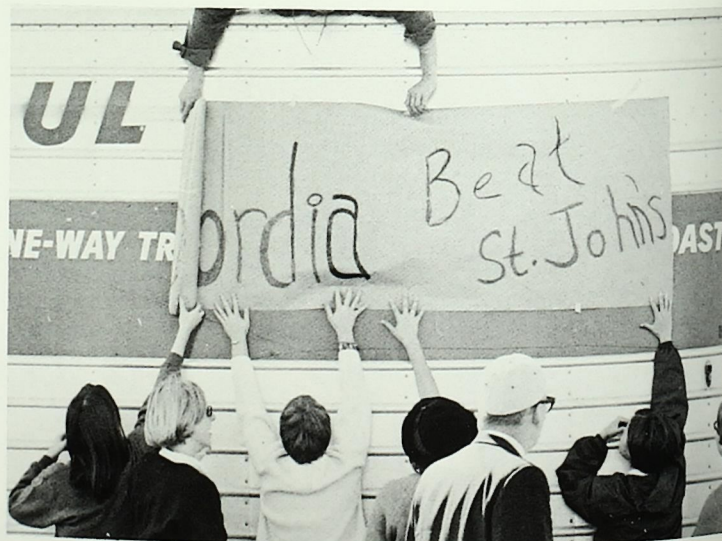 UL
NE-WAY TR
OAST
ordia
Beat
St. John's